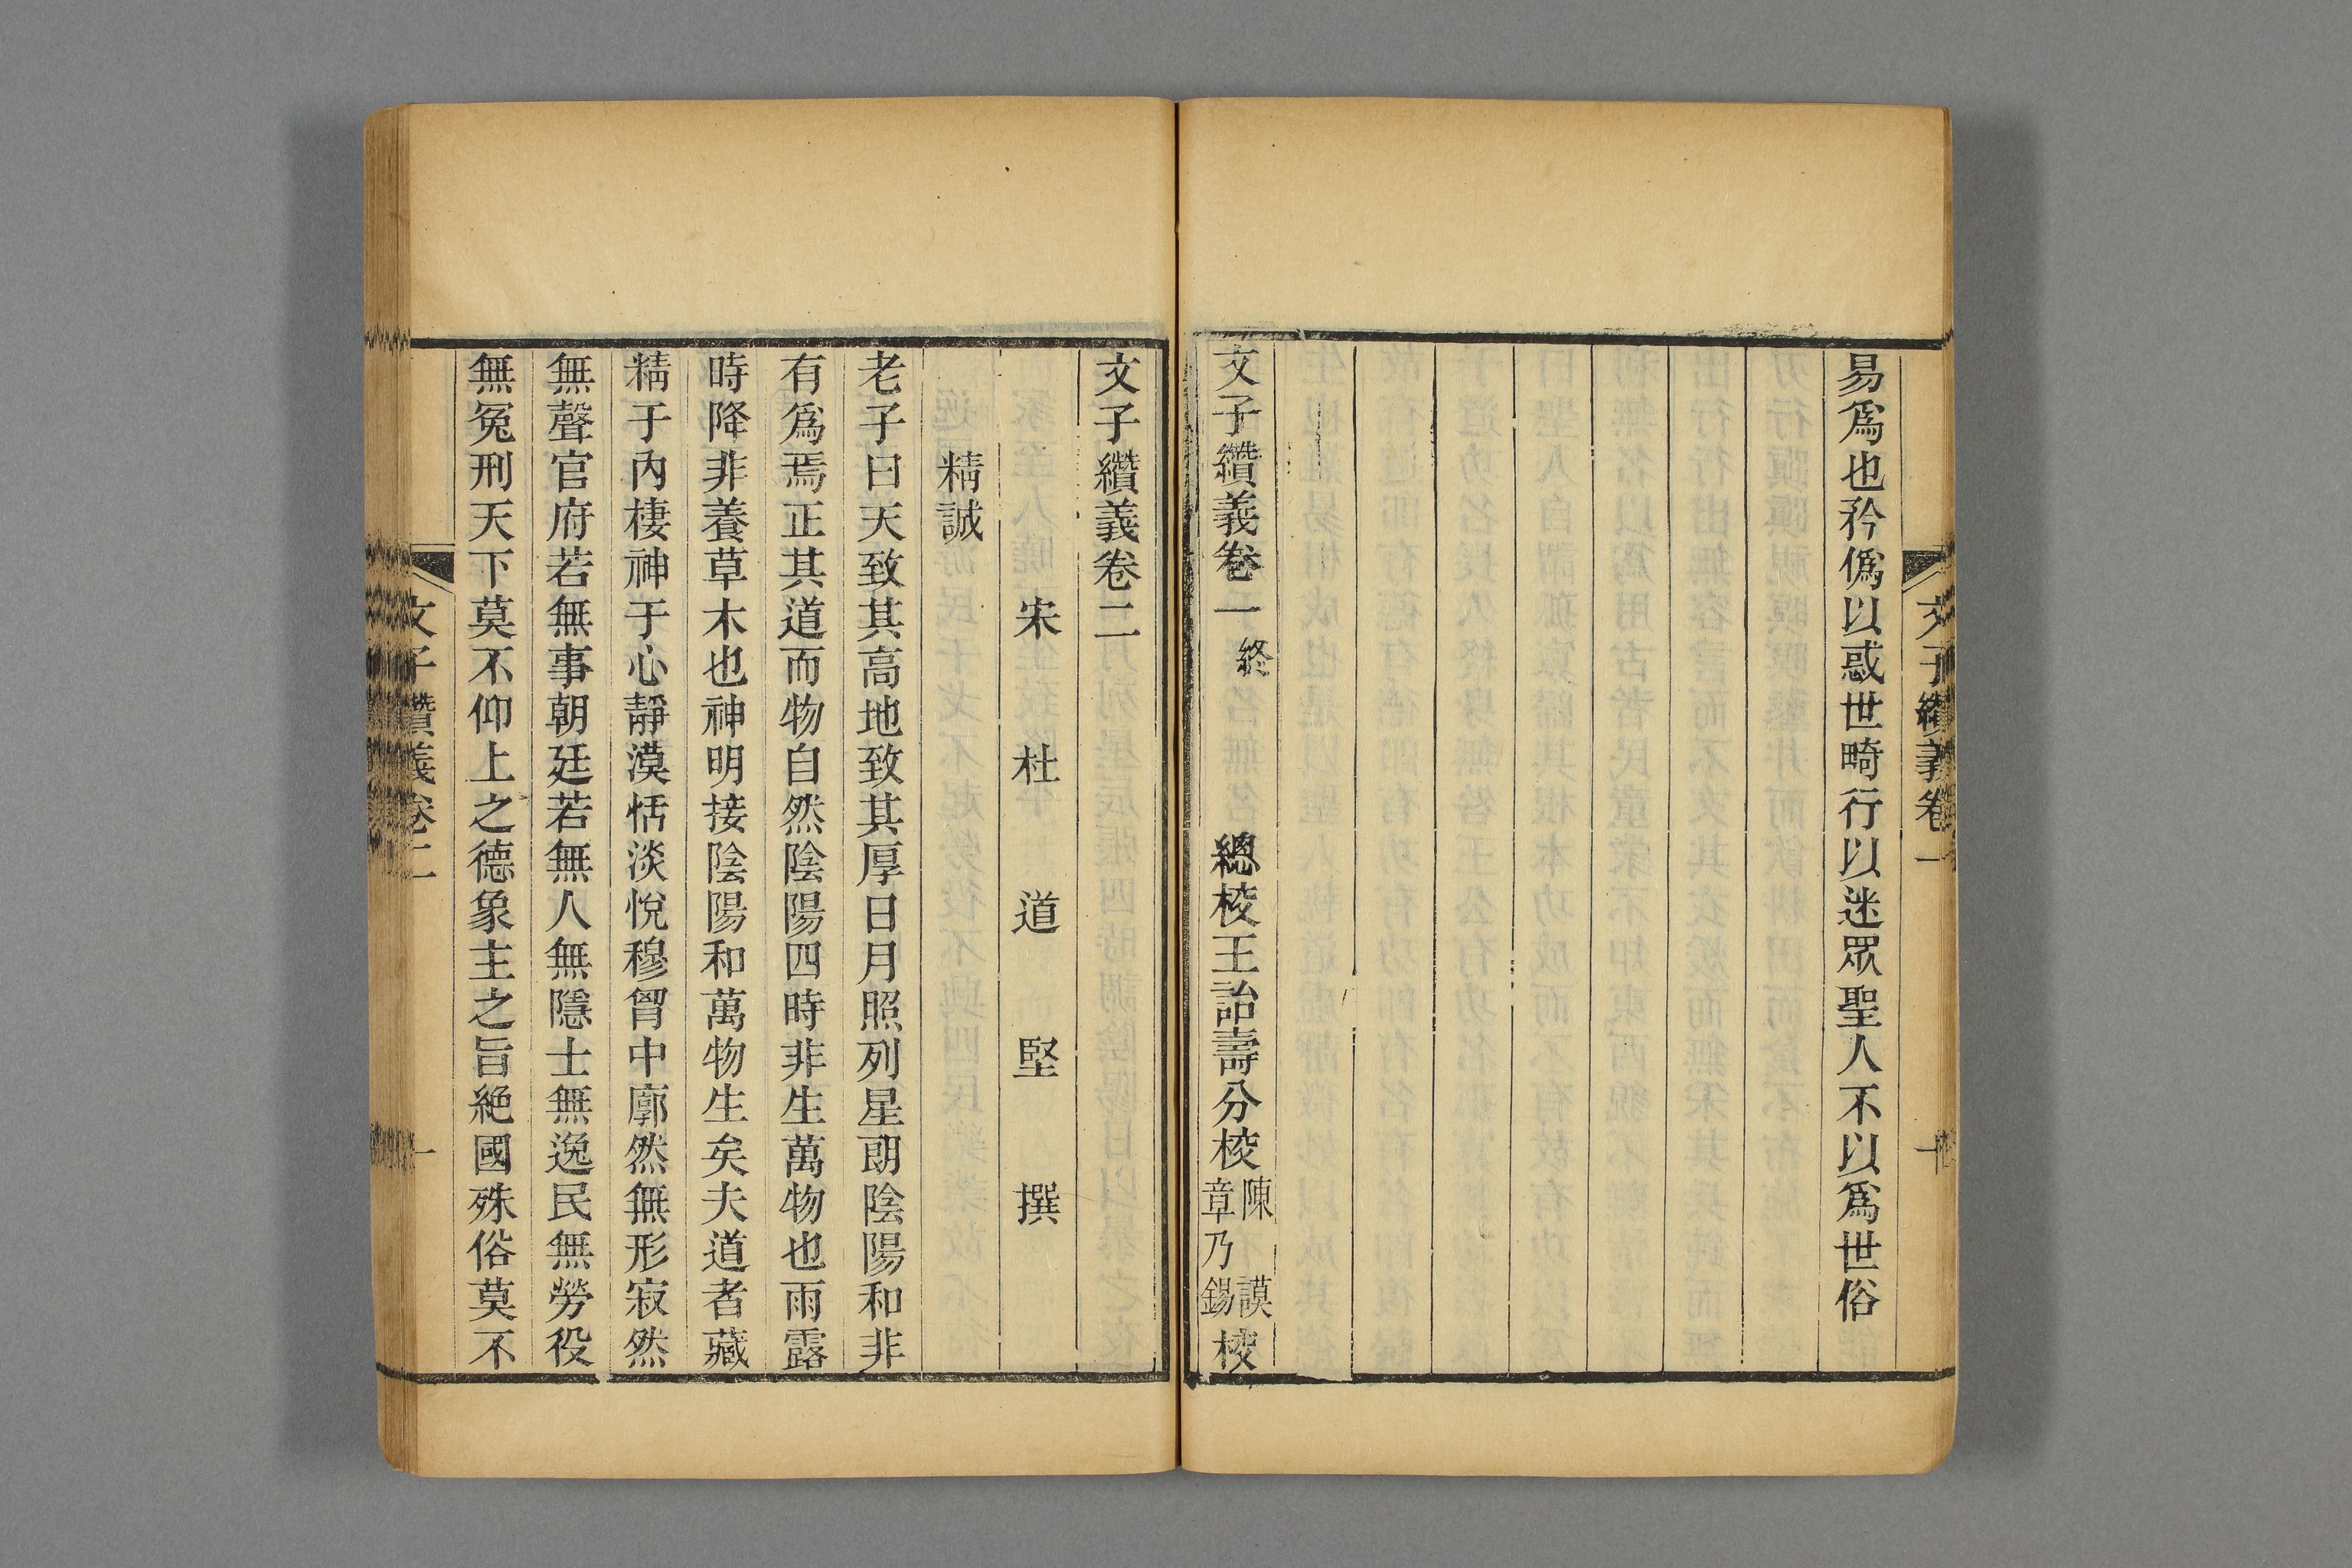 文子纘義卷一
十
易爲也矜僞以惑世畸行以迷眾聖人不以爲世俗
文子纘義卷一 終 總校王詒壽分校陳謨 章乃錫校
文子纘義卷二
宋 杜 道 堅 撰
精誠
老子曰天致其高地致其厚日月照列星朗陰陽和非
有爲焉正其道而物自然陰陽四時非生萬物也雨露
時降非養草木也神明接陰陽和萬物生矣夫道者藏
精于內棲神于心靜漠恬淡悅穆胷中廓然無形寂然
無聲官府若無事朝廷若無人無隱士無逸民無勞役
無冤刑天下莫不仰上之德象主之旨絶國殊俗莫不
文子纘義卷二
一